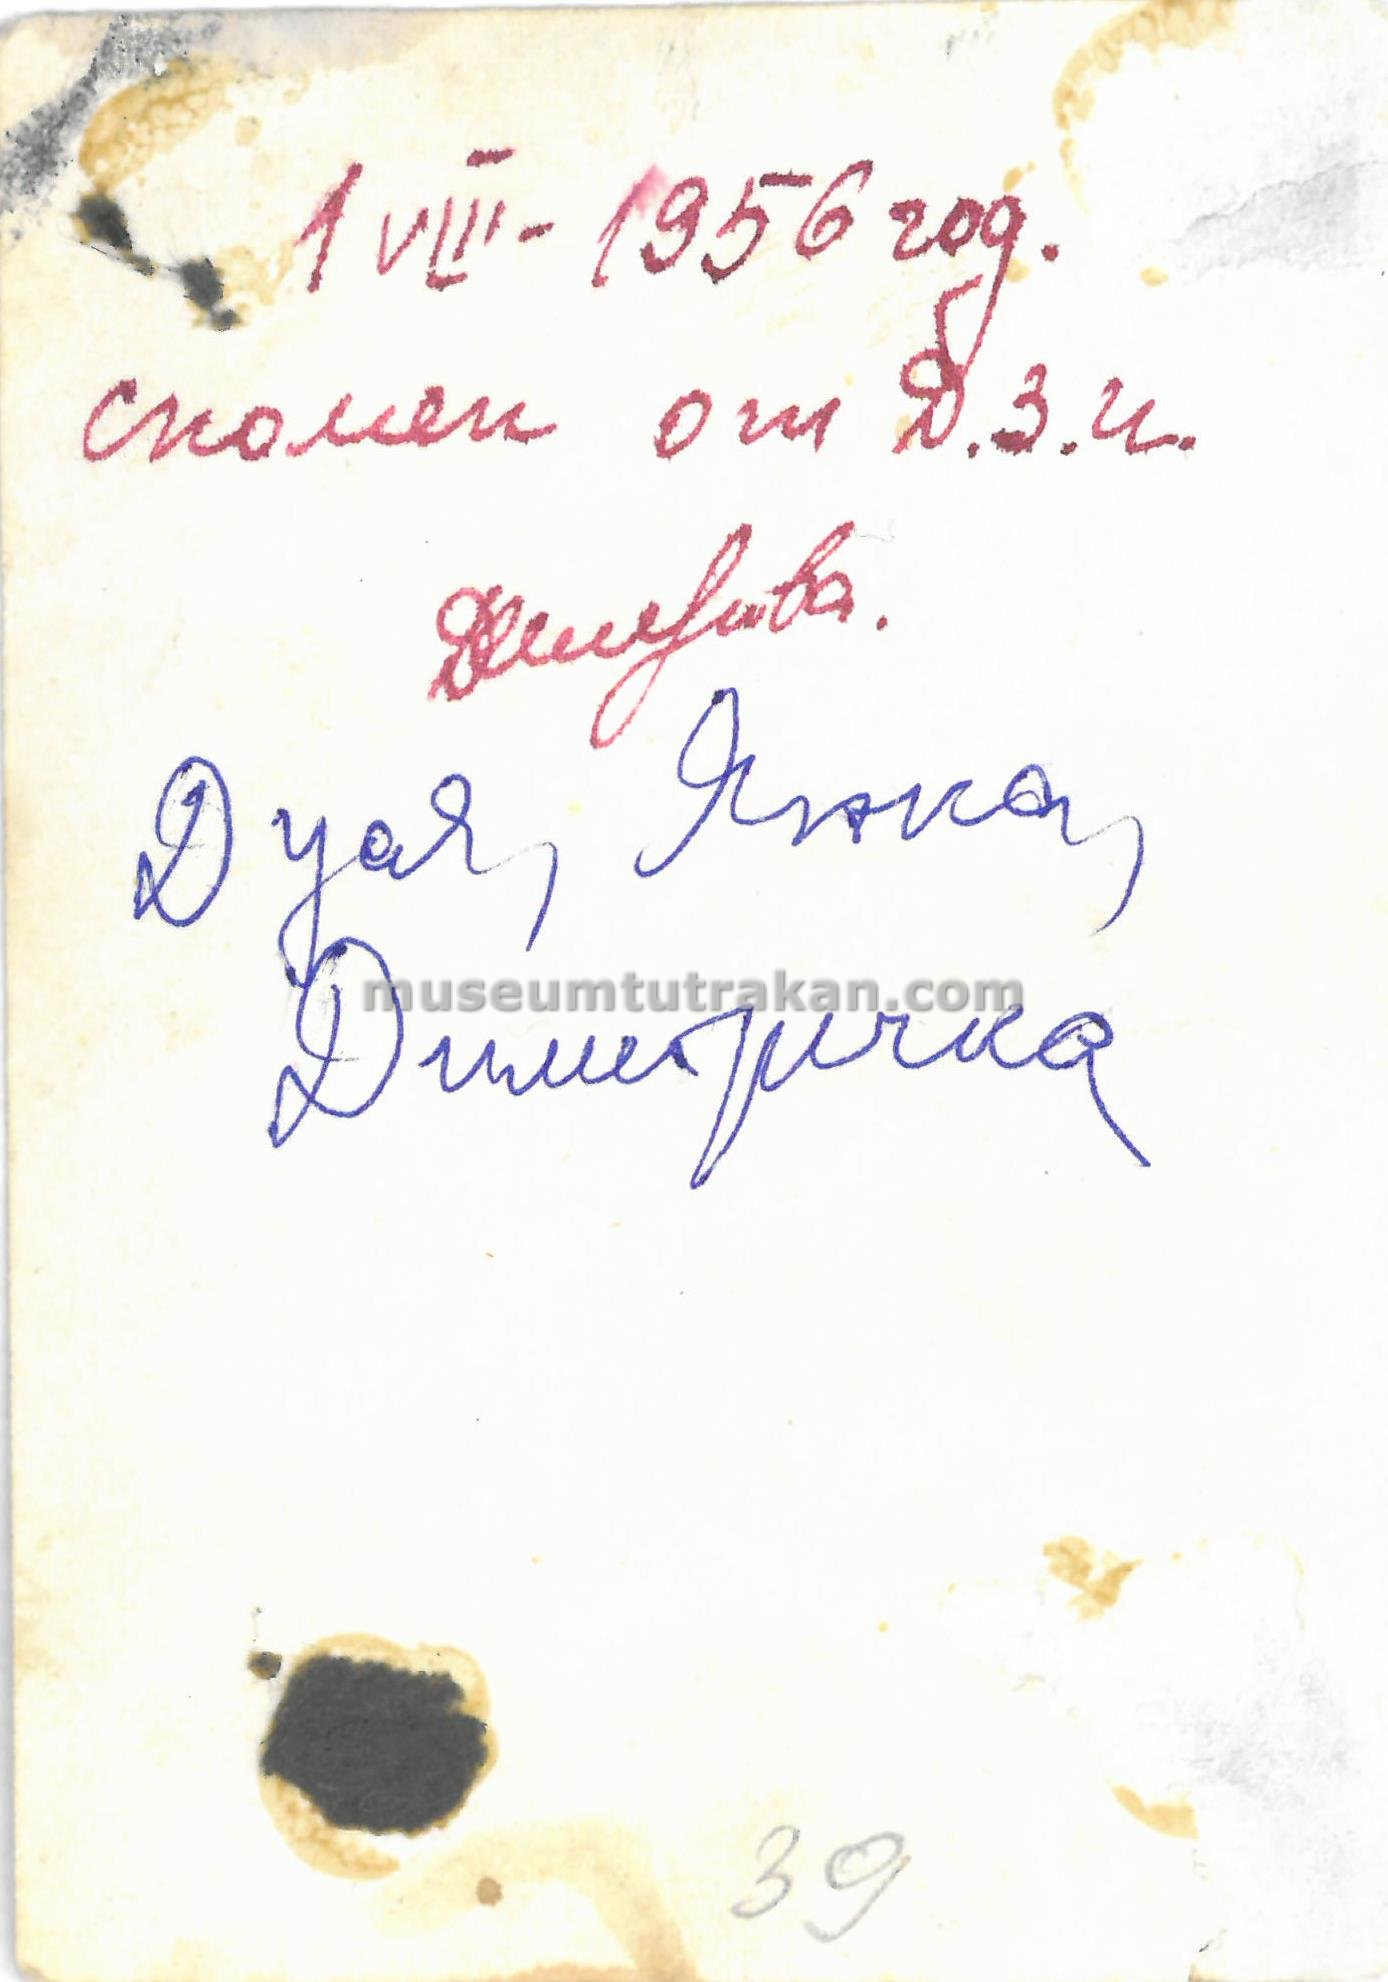 1 VIII - 1956 год.
спомен от Д.З.И.
Дуая, Янка,
museumtutrakan.com
Димитричка
39